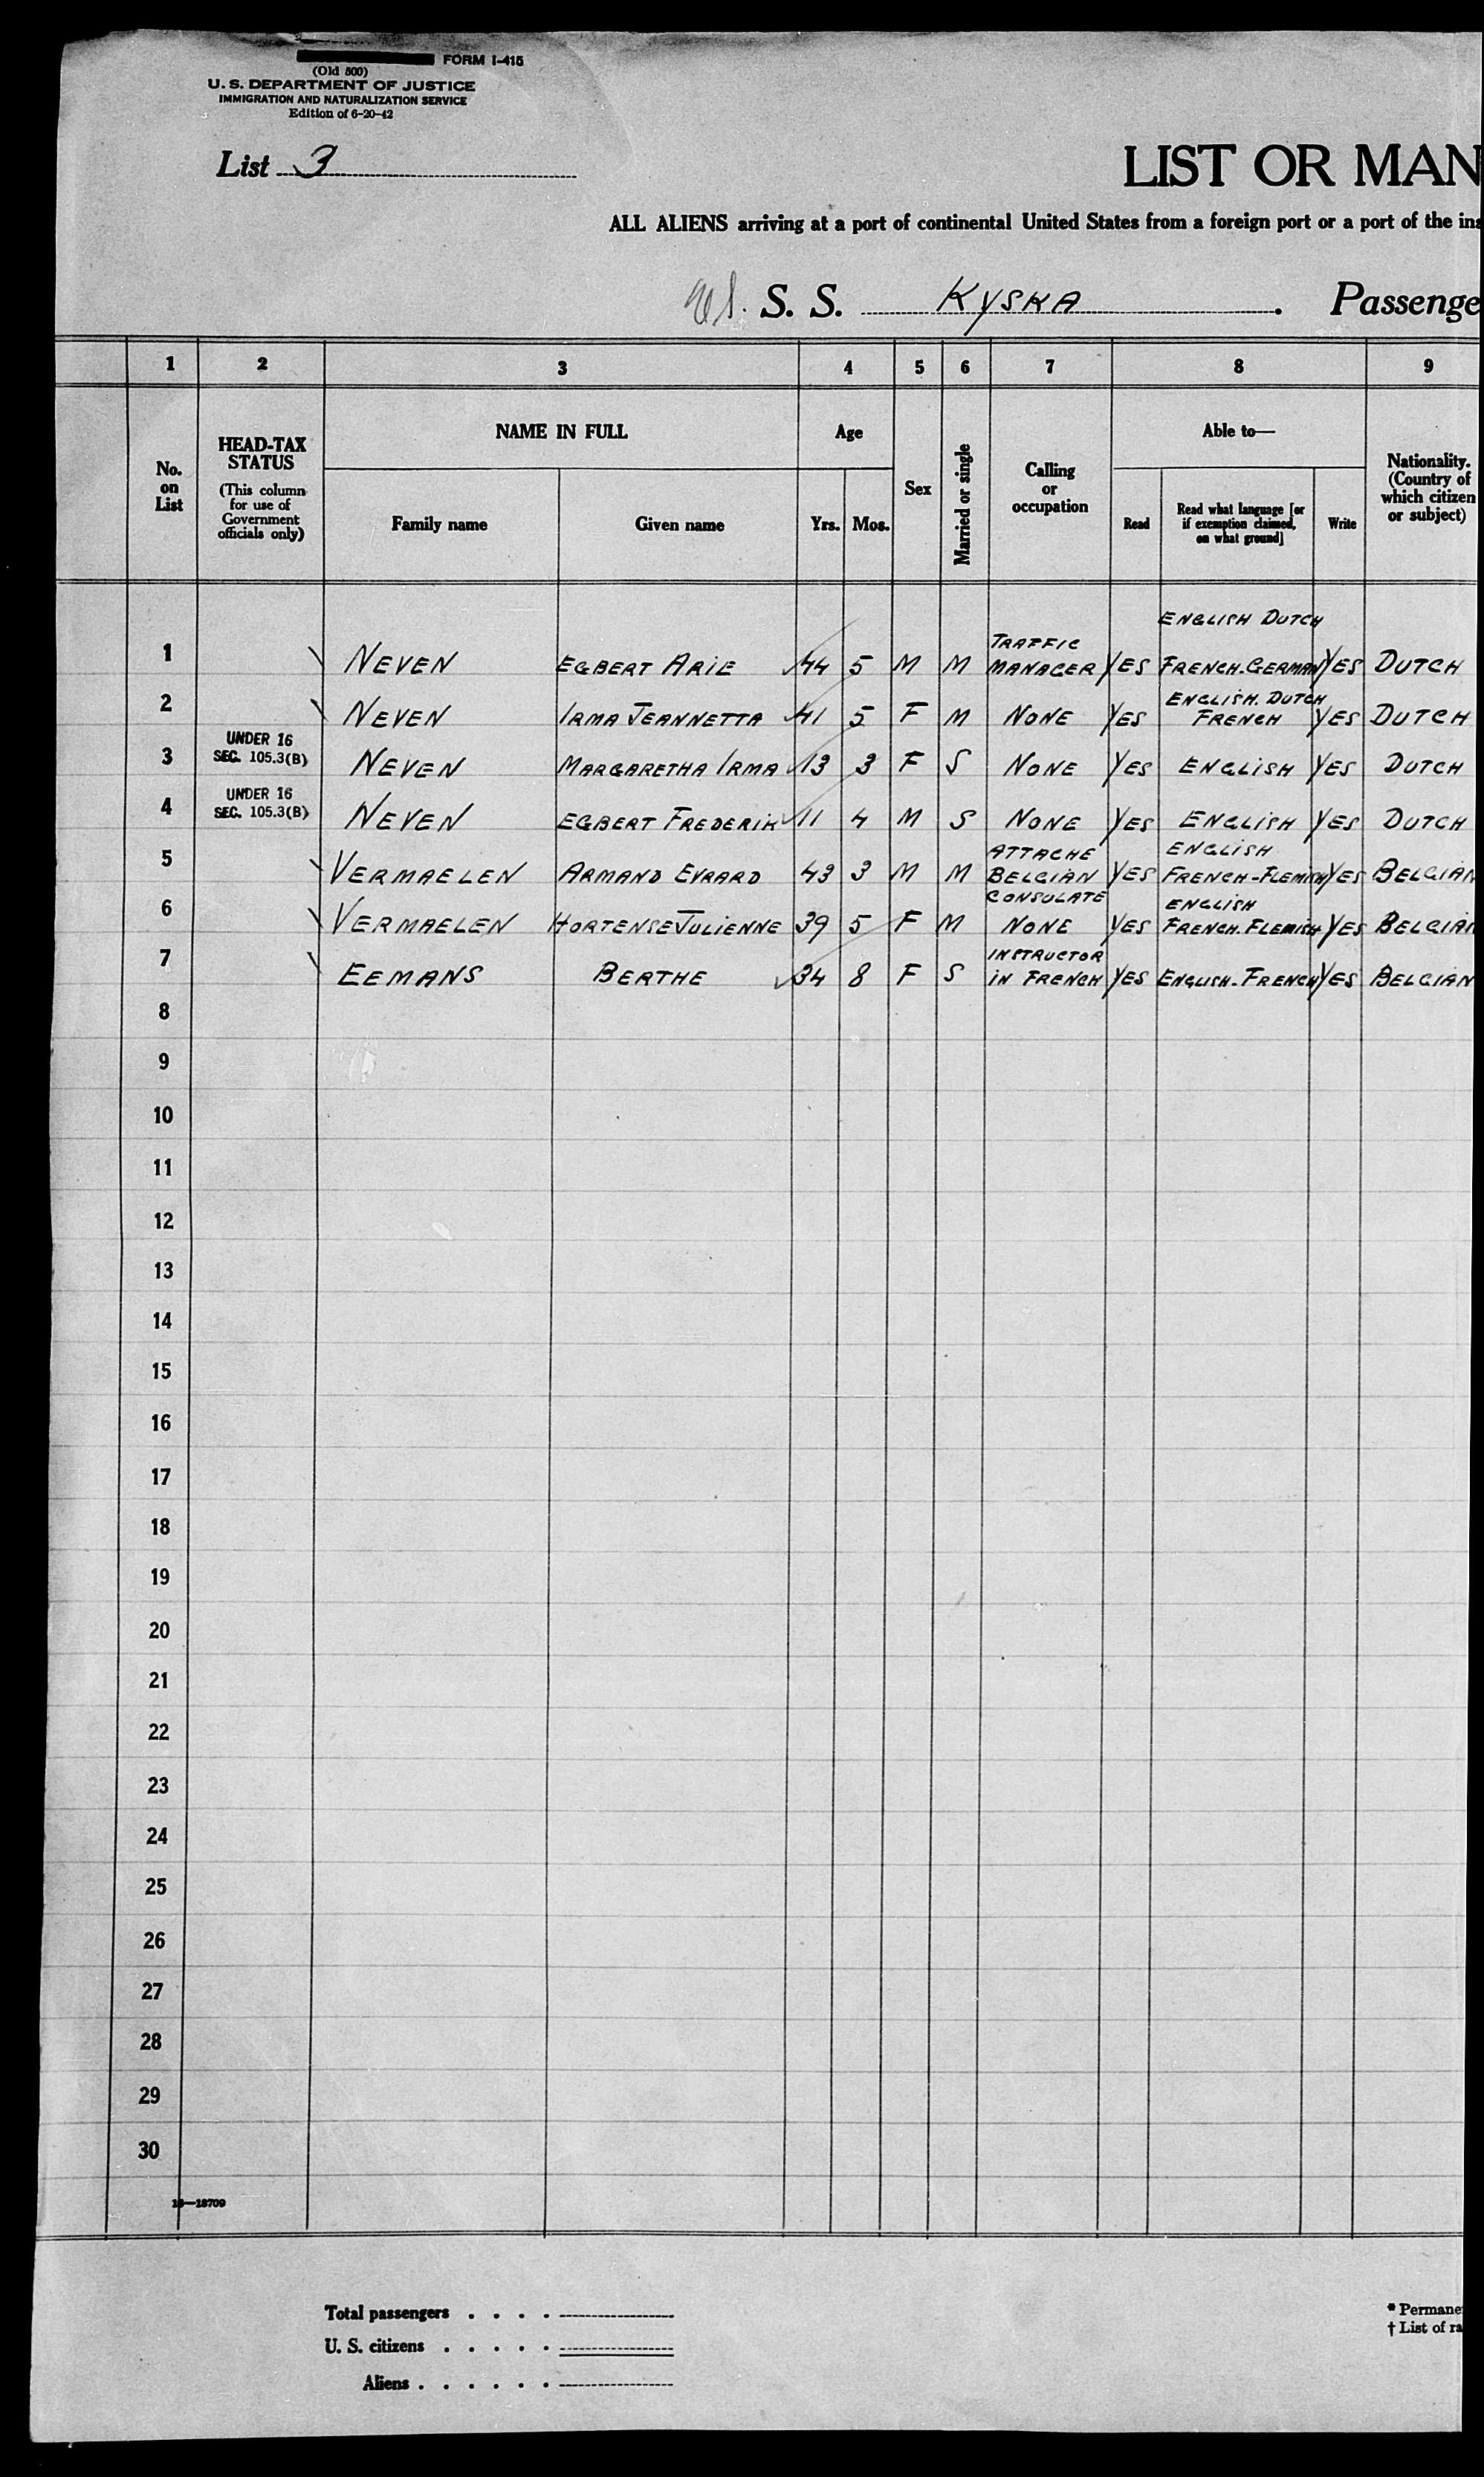 FORM I-415
(Old 500)
U. S. DEPARTMENT OF JUSTICE
IMMIGRATION AND NATURALIZATION SERVICE
Edition of 6-20-42
List 3
LIST OR MAN
ALL ALIENS arriving at a port of continental United States from a foreign port or a port of the ins
S. S. KYSKA. Passenge
1 2 3 4 5 6 7 8 9
No. on List
HEAD-TAX STATUS
(This column for use of Government officials only)
NAME IN FULL
Family name
Given name
Age
Yrs. Mos.
Sex
Married or single
Calling or occupation
Able to—
Read
Read what language [or if exemption claimed, on what ground]
Write
Nationality. (Country of which citizen or subject)
1 NEVEN EGBERT ARIE 44 5 M M TRAFFIC MANAGER YES ENGLISH DUTCH FRENCH-GERMAN YES DUTCH
2 NEVEN IRMA JEANNETTA 41 5 F M NONE YES ENGLISH. DUTCH FRENCH YES DUTCH
3 UNDER 16 SEC. 105.3(B) NEVEN MARGARETHA IRMA 13 3 F S NONE YES ENGLISH YES DUTCH
4 UNDER 16 SEC. 105.3(B) NEVEN EGBERT FREDERIK 11 4 M S NONE YES ENGLISH YES DUTCH
5 VERMAELEN ARMAND EVRARD 43 3 M M ATTACHE BELGIAN CONSULATE YES ENGLISH FRENCH-FLEMISH YES BELGIAN
6 VERMAELEN HORTENSE JULIENNE 39 5 F M NONE YES ENGLISH FRENCH. FLEMISH YES BELGIAN
7 EEMANS BERTHE 34 8 F S INSTRUCTOR IN FRENCH YES ENGLISH-FRENCH YES BELGIAN
8
9
10
11
12
13
14
15
16
17
18
19
20
21
22
23
24
25
26
27
28
29
30
16—18709
Total passengers . . . .
U. S. citizens . . . . .
Aliens . . . . . .
* Permane
† List of ra